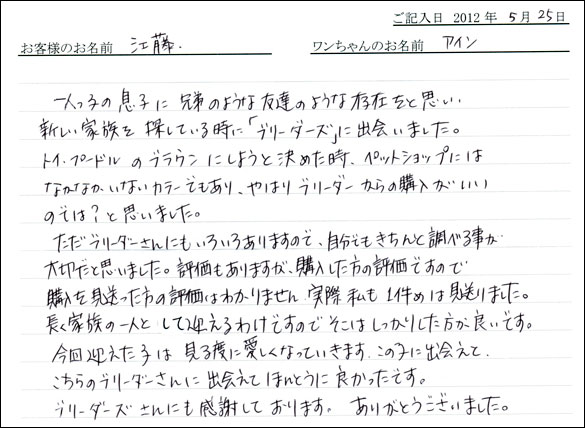 ご記入日 2012 年 5 月 25 日
お客様のお名前 江藤. ワンちゃんのお名前 アイン
一人っ子の息子に兄弟のような友達のような存在をと思い
新しい家族を探している時に「ブリーダーズ」に出会いました。
トイ・プードルのブラウンにしようと決めた時、ペットショップには
なかなかいないカラーでもあり、やはりブリーダーからの購入がいい
のでは?と思いました。
ただブリーダーさんにもいろいろありますので、自分でもきちんと調べる事が
大切だと思いました。評価もありますが、購入した方の評価ですので
購入を見送った方の評価はわかりません 実際私も1件めは見送りました。
長く家族の一人として迎えるわけですのでそこはしっかりした方が良いです。
今回迎えた子は見る度に愛しくなっていきます。この子に出会えて、
こちらのブリーダーさんに出会えてほんとうに良かったです。
ブリーダーズさんにも感謝しております。 ありがとうございました。